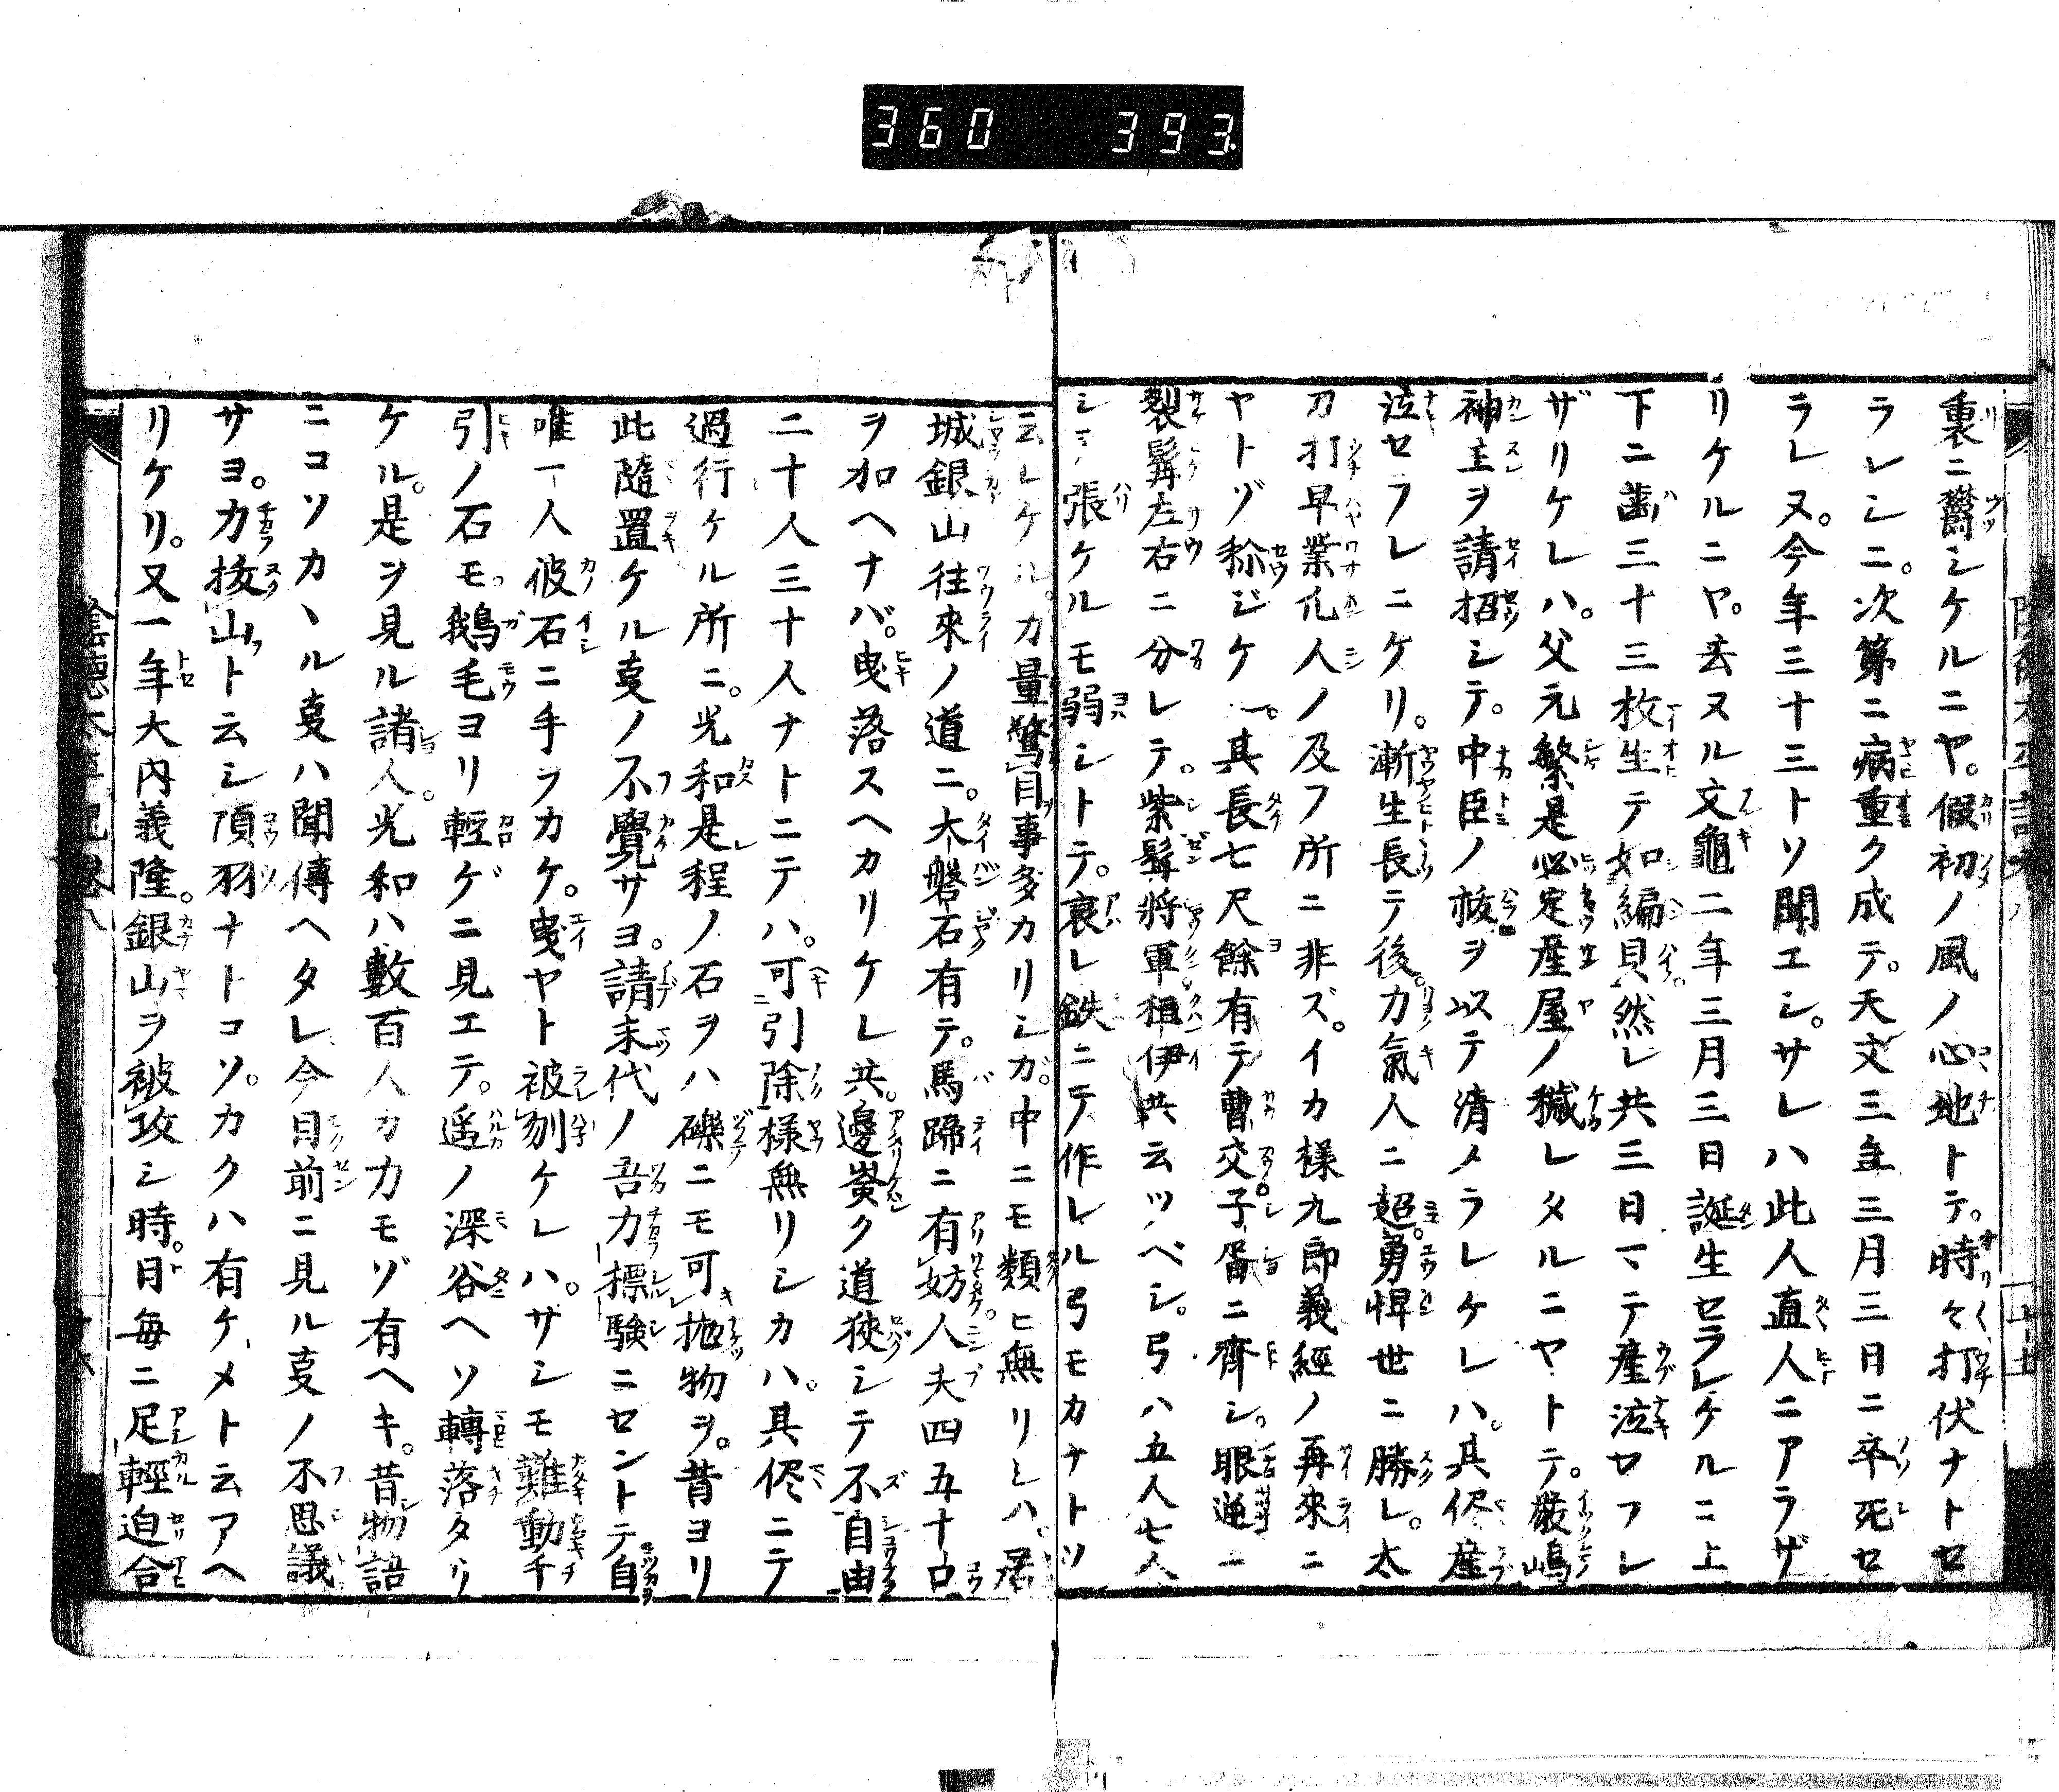 360 393
裏ニ欝シケルニヤ。假初ノ風ノ心地トテ。時々打伏ナトセ
ラレシニ。次第ニ病重ク成テ。天文三年三月三日ニ卒死セ
ラレヌ。今年三十三トソ聞エシ。サレハ此人直人ニアラザ
リケルニヤ。去ヌル文龜二年三月三日誕生セラレケルニ上
下ニ齒三十三枚生テ如編貝然レ共三日マテ産泣セラレ
ザリケレハ。父元繁是必定産屋ノ穢レタルニヤトテ。嚴嶋
神主ヲ請招シテ。中臣ノ祓ヲ以テ清メラレケレハ。其侭産
泣セラレニケリ。漸生長テ後。力氣人ニ超。勇悍世ニ勝レ。太
刀打早業凡人ノ及フ所ニ非ズ。イカ様九郎義經ノ再來ニ
ヤトゾ称ジケル。其長七尺餘有テ曹交子胥ニ齊シ。眼逆ニ
裂髯左右ニ分レテ。紫髯將軍桓伊共云ツベシ。弓ハ五人七人
シテ張ケルモ弱シトテ。哀レ鉄ニテ作レル弓モカナトソ
云レケル。力量驚目事多カリシガ。中ニモ類ヒ無リシハ。居
城銀山往來ノ道ニ。大磐石有テ。馬蹄ニ有妨人夫四五十口
ヲ加ヘナバ。曳落スヘカリケレ共。邊嶮ク道狹シテ不自由
二十人三十人ナトニテハ。可引除樣無リシカハ。其侭ニテ
過行ケル所ニ。光和是程ノ石ヲハ礫ニモ可抛物ヲ。昔ヨリ
此隨置ケル叓ノ不覺サヨ。請末代ノ吾力標験ニセントテ自
唯一人彼石ニ手ヲカケ。曳ヤト被刎ケレハ。サシモ難動千
引ノ石モ鵝毛ヨリ輕ゲニ見エテ。遥ノ深谷ヘソ轉落タリ
ケル。是ヲ見ル諸人。光和ハ數百人カ力モゾ有ヘキ。昔物語
ニコソカヽル叓ハ聞傳ヘタレ今目前ニ見ル叓ノ不思議
サヨ。力拔山ト云シ項羽ナトコソ。カクハ有ケメト云アヘ
リケリ。又一年大内義隆。銀山ヲ被攻シ時。日毎ニ足輕迫合
陰徳太平記卷八